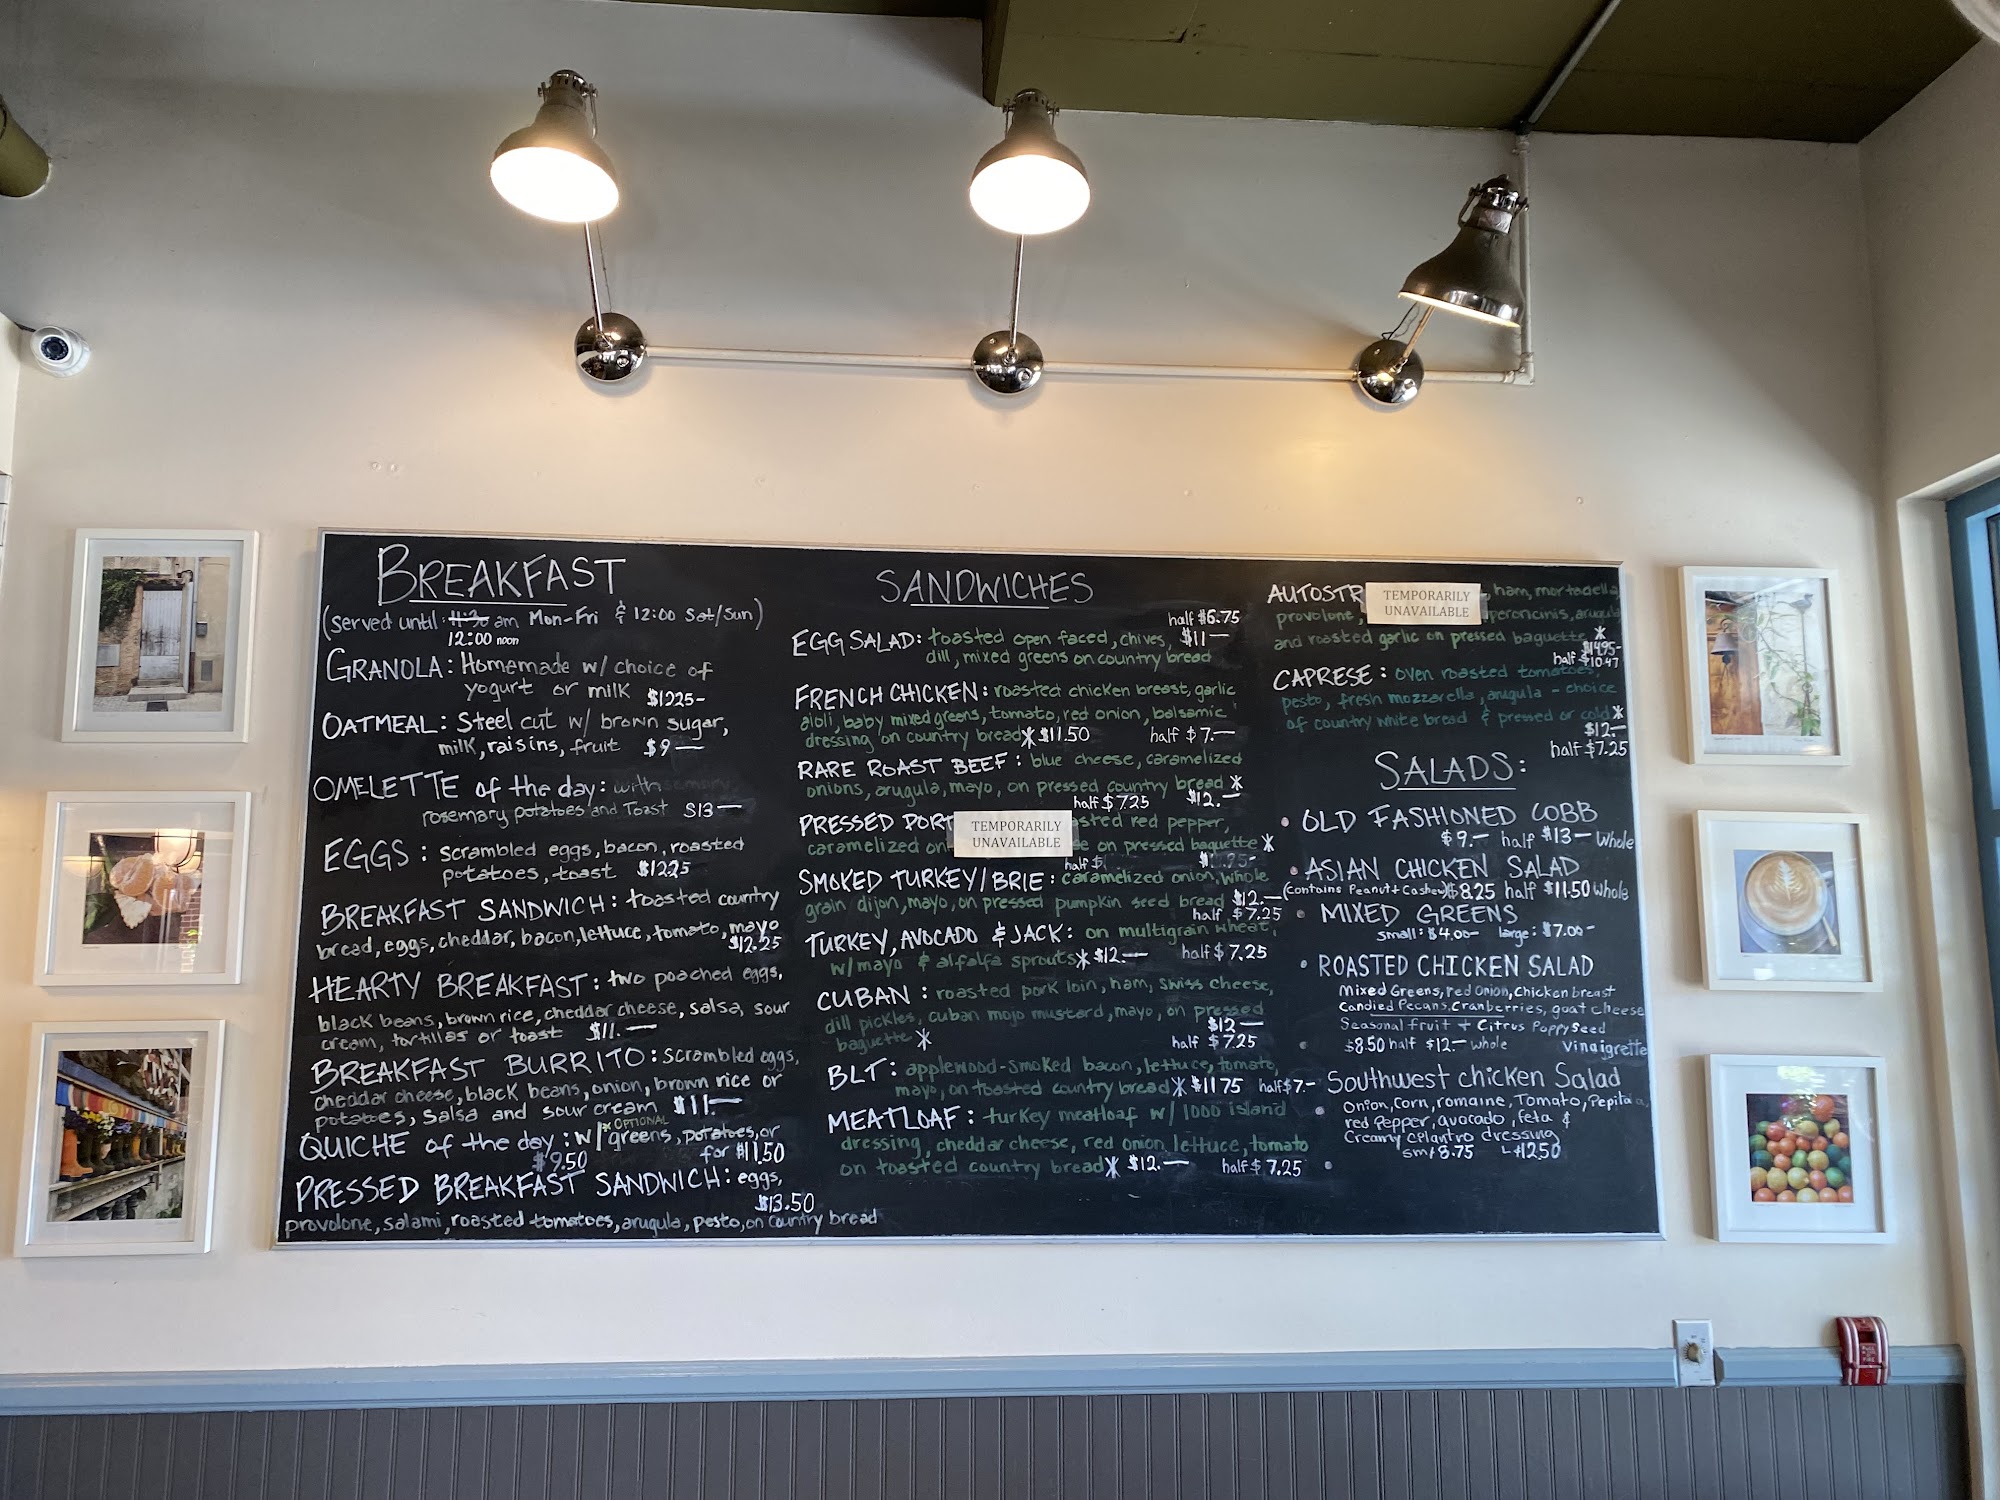 BREAKFAST
(served until 11:30 am Mon-Fri & 12:00 Sat/Sun)
12:00 noon
GRANOLA: Homemade w/ choice of
yogurt or milk $12.25-
OATMEAL: Steel cut w/ brown sugar,
milk, raisins, fruit $9—
OMELETTE of the day: with
rosemary potatoes and Toast $13—
EGGS: scrambled eggs, bacon, roasted
potatoes, toast $12.25
BREAKFAST SANDWICH: toasted country
bread, eggs, cheddar, bacon, lettuce, tomato, mayo
$12.25
HEARTY BREAKFAST: two poached eggs,
black beans, brown rice, cheddar cheese, salsa, sour
cream, tortillas or toast $11.—
BREAKFAST BURRITO: scrambled eggs,
cheddar cheese, black beans, onion, brown rice or
potatoes, salsa and sour cream $11.—
* OPTIONAL
QUICHE of the day: w/ greens, potatoes, or
$9.50 for $11.50
PRESSED BREAKFAST SANDWICH: eggs,
$13.50
provolone, salami, roasted tomatoes, arugula, pesto, on country bread
SANDWICHES
half $6.75
EGG SALAD: toasted open faced, chives, $11—
dill, mixed greens on country bread
FRENCH CHICKEN: roasted chicken breast, garlic
aioli, baby mixed greens, tomato, red onion, balsamic
dressing on country bread* $11.50 half $7.—
RARE ROAST BEEF: blue cheese, caramelized
onions, arugula, mayo, on pressed country bread *
half $7.25 $12.—
PRESSED PORT
TEMPORARILY
UNAVAILABLE
red pepper,
caramelized on pressed baguette *
half $
SMOKED TURKEY/BRIE: caramelized onion, whole
grain dijon, mayo, on pressed pumpkin seed bread $12.—
half $7.25
TURKEY, AVOCADO & JACK: on multigrain wheat,
w/mayo & alfalfa sprouts* $12.— half $7.25
CUBAN: roasted pork loin, ham, swiss cheese,
dill pickles, cuban mojo mustard, mayo, on pressed
$12—
baguette * half $7.25
BLT: applewood-smoked bacon, lettuce, tomato,
mayo, on toasted country bread* $11.75 half $7.-
MEATLOAF: turkey meatloaf w/ 1000 island
dressing, cheddar cheese, red onion, lettuce, tomato
on toasted country bread* $12.— half $7.25
AUTOSTR
TEMPORARILY
UNAVAILABLE
ham, mortadella
provolone, peroncinis, arugula
and roasted garlic on pressed baguette *
$14.95-
half $10.47
CAPRESE: oven roasted tomatoes,
pesto, fresh mozzarella, arugula - choice
of country white bread & pressed or cold*
$12—
half $7.25
SALADS:
• OLD FASHIONED COBB
$9.- half $13- Whole
• ASIAN CHICKEN SALAD
(contains Peanut + Cashew) $8.25 half $11.50 whole
• MIXED GREENS
small: $4.00- large: $7.00-
• ROASTED CHICKEN SALAD
Mixed Greens, red Onion, Chicken breast
Candied Pecans, Cranberries, goat cheese
Seasonal fruit + Citrus Poppyseed
$8.50 half $12.— whole Vinaigrette
• Southwest chicken Salad
Onion, Corn, romaine, Tomato, Pepita
red Pepper, avocado, feta &
Creamy cilantro dressing
sm/ 8.75 L- $12.50